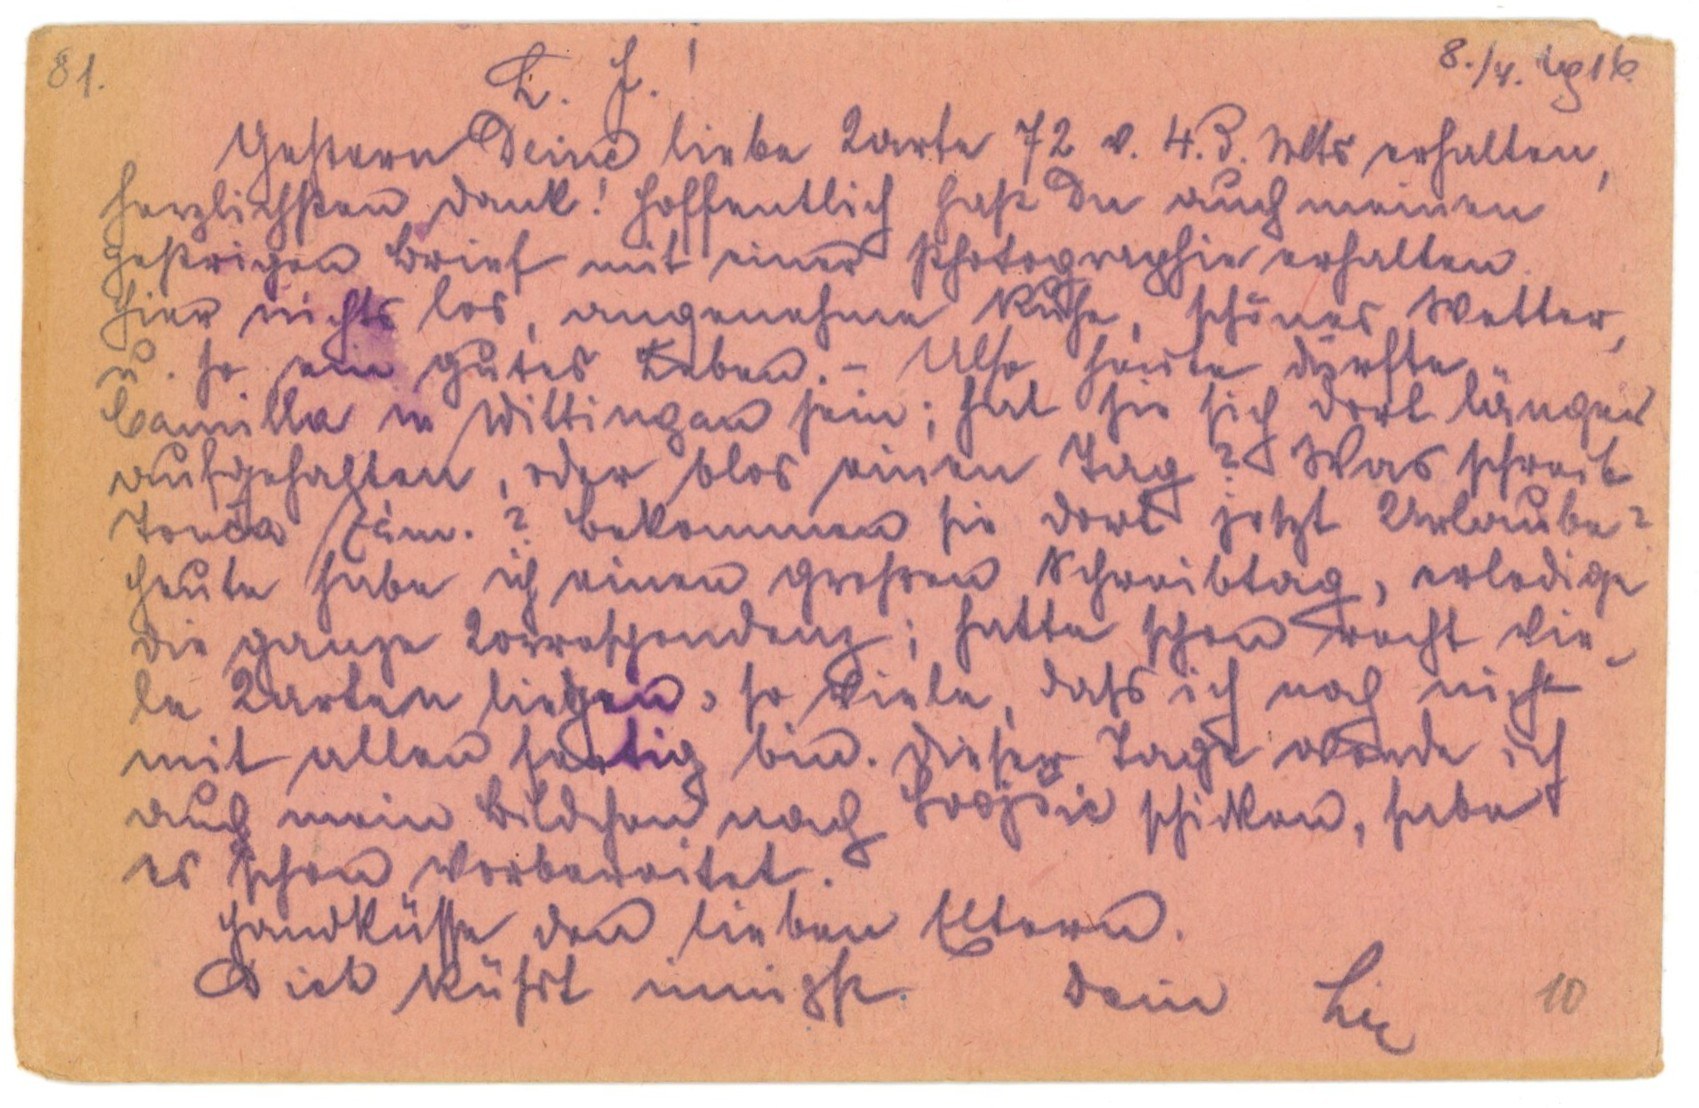 81.
L. J.!
8./4. 1916
Gestern Deine liebe Karte 72 v. 4. d. Mts erhalten,
herzlichsten Dank! Hoffentlich hast Du auch meinen
gestrigen Brief mit einer Photographie erhalten.
Hier nichts los, angenehme Ruhe, schönes Wetter,
u. so ein gutes Leben. – Also heute dürfte
Camilla in Wittingau sein; hat sie sich dort länger
aufgehalten, oder blos einen Tag? Was schreib
? Bekommen sie dort jetzt Urlaube?
Heute habe ich einen grossen Schreibtag, erledige
die ganze Korrespondenz; hatte schon recht vie-
le Karten liegen, so viele, dass ich noch nicht
mit allen fertig bin. Dieser Tage werde ich
auch mein Bildchen nach schicken, habe
es schon vorbereitet.
Handküsse den lieben Eltern.
Dich küsst innigst Dein
10